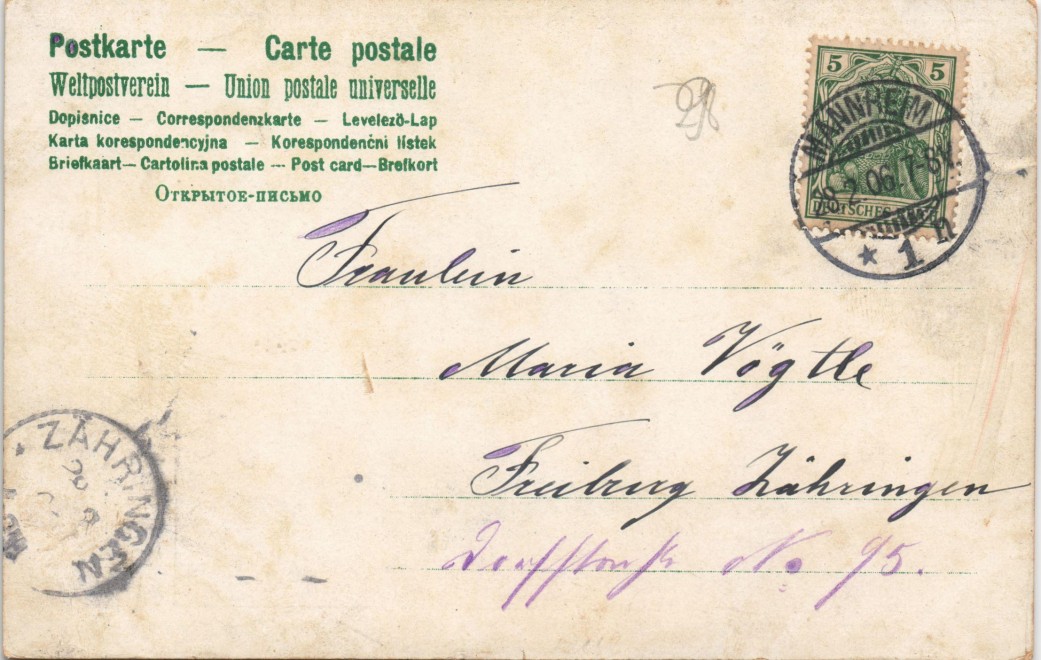 Postkarte — Carte postale
Weltpostverein — Union postale universelle
Dopisnice — Correspondenzkarte — Levelező-Lap
Karta korespondencyjna — Korespondenční lístek
Briefkaart — Cartolina postale — Post card — Brefkort
Открытое-письмо
5 5
DEUTSCHES
MANNHEIM
2 06. 7-8V.
* 1 n
Fraulein
Maria Vögtle
Freiburg Zähringen
Dorfstraße No 95.
ZÄHRINGEN